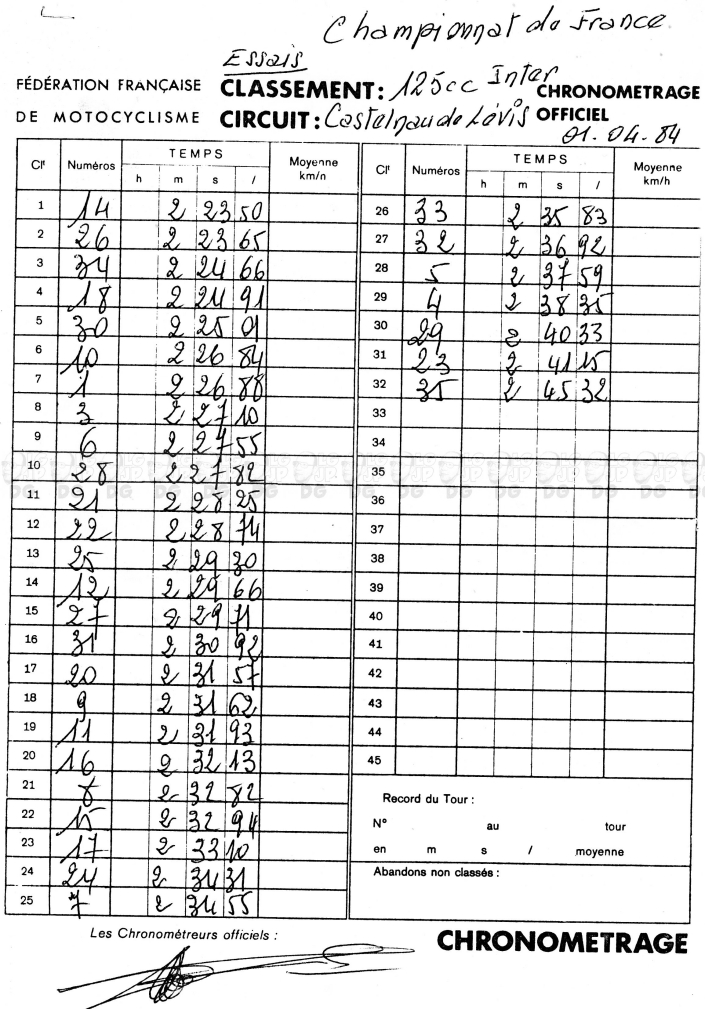 Championnat de France
Essais
FÉDÉRATION FRANÇAISE CLASSEMENT: 125cc Inter CHRONOMETRAGE
DE MOTOCYCLISME CIRCUIT: Castelnau de Lévis OFFICIEL
01.04.84
Clt Numéros TEMPS Moyenne km/h
h m s /
1 14 2 23 50
2 26 2 23 65
3 34 2 24 66
4 18 2 24 91
5 30 2 25 01
6 10 2 26 84
7 1 2 26 88
8 3 2 27 10
9 6 2 27 55
10 28 2 27 82
11 21 2 28 25
12 22 2 28 74
13 25 2 29 30
14 12 2 29 66
15 27 2 29 71
16 31 2 30 92
17 20 2 31 57
18 9 2 31 62
19 11 2 31 93
20 16 2 32 13
21 8 2 32 82
22 15 2 32 94
23 17 2 33 10
24 24 2 34 31
25 7 2 34 55
Clt Numéros TEMPS Moyenne km/h
h m s /
26 33 2 35 83
27 32 2 36 92
28 5 2 37 59
29 4 2 38 35
30 29 2 40 33
31 23 2 41 15
32 35 2 45 32
33
34
35
36
37
38
39
40
41
42
43
44
45
Record du Tour :
N° au tour
en m s / moyenne
Abandons non classés :
Les Chronométreurs officiels :
CHRONOMETRAGE